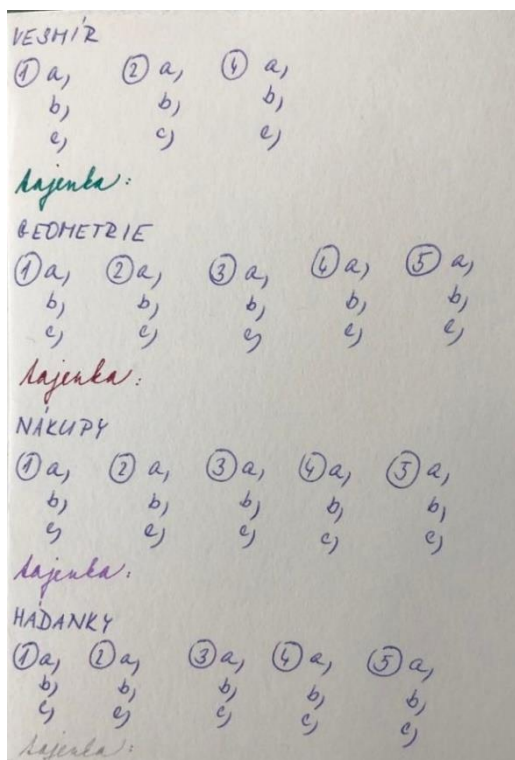 VESMÍR
① a, ② a, ④ a,
b, b, b,
c, c, c,
tajenka:
GEOMETRIE
① a, ② a, ③ a, ④ a, ⑤ a,
b, b, b, b, b,
c, c, c, c, c,
tajenka:
NÁKUPY
① a, ② a, ③ a, ④ a, ⑤ a,
b, b, b, b, b,
c, c, c, c, c,
tajenka:
HÁDANKY
① a, ② a, ③ a, ④ a, ⑤ a,
b, b, b, b, b,
c, c, c, c, c,
tajenka: